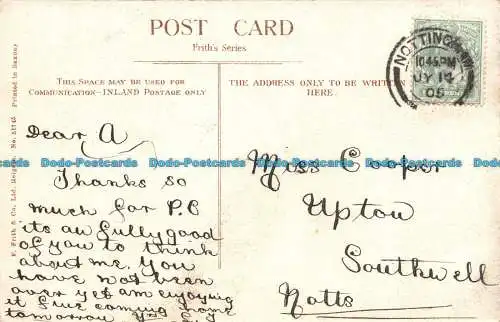 POST CARD
Frith's Series
THIS SPACE MAY BE USED FOR
COMMUNICATION—INLAND POSTAGE ONLY
THE ADDRESS ONLY TO BE WRITTEN
HERE.
NOTTINGHAM
10.45PM
JY 14
05
Dear A
Thanks so
much for P.C
its aufully good
of you to think
about me. You
have not been
over yet am enjoying
it fine coming home
tomorrow
Miss Cooper
Upton
Southwell
Notts
F. Frith & Co. Ltd. Reigate. No.
Printed in Saxony
Dodo-Postcards Dodo-Postcards Dodo-Postcards Dodo-Postcards